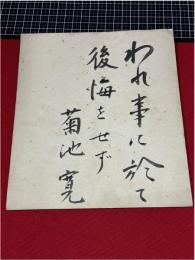 われ事に於て
後悔をせず
菊池寛